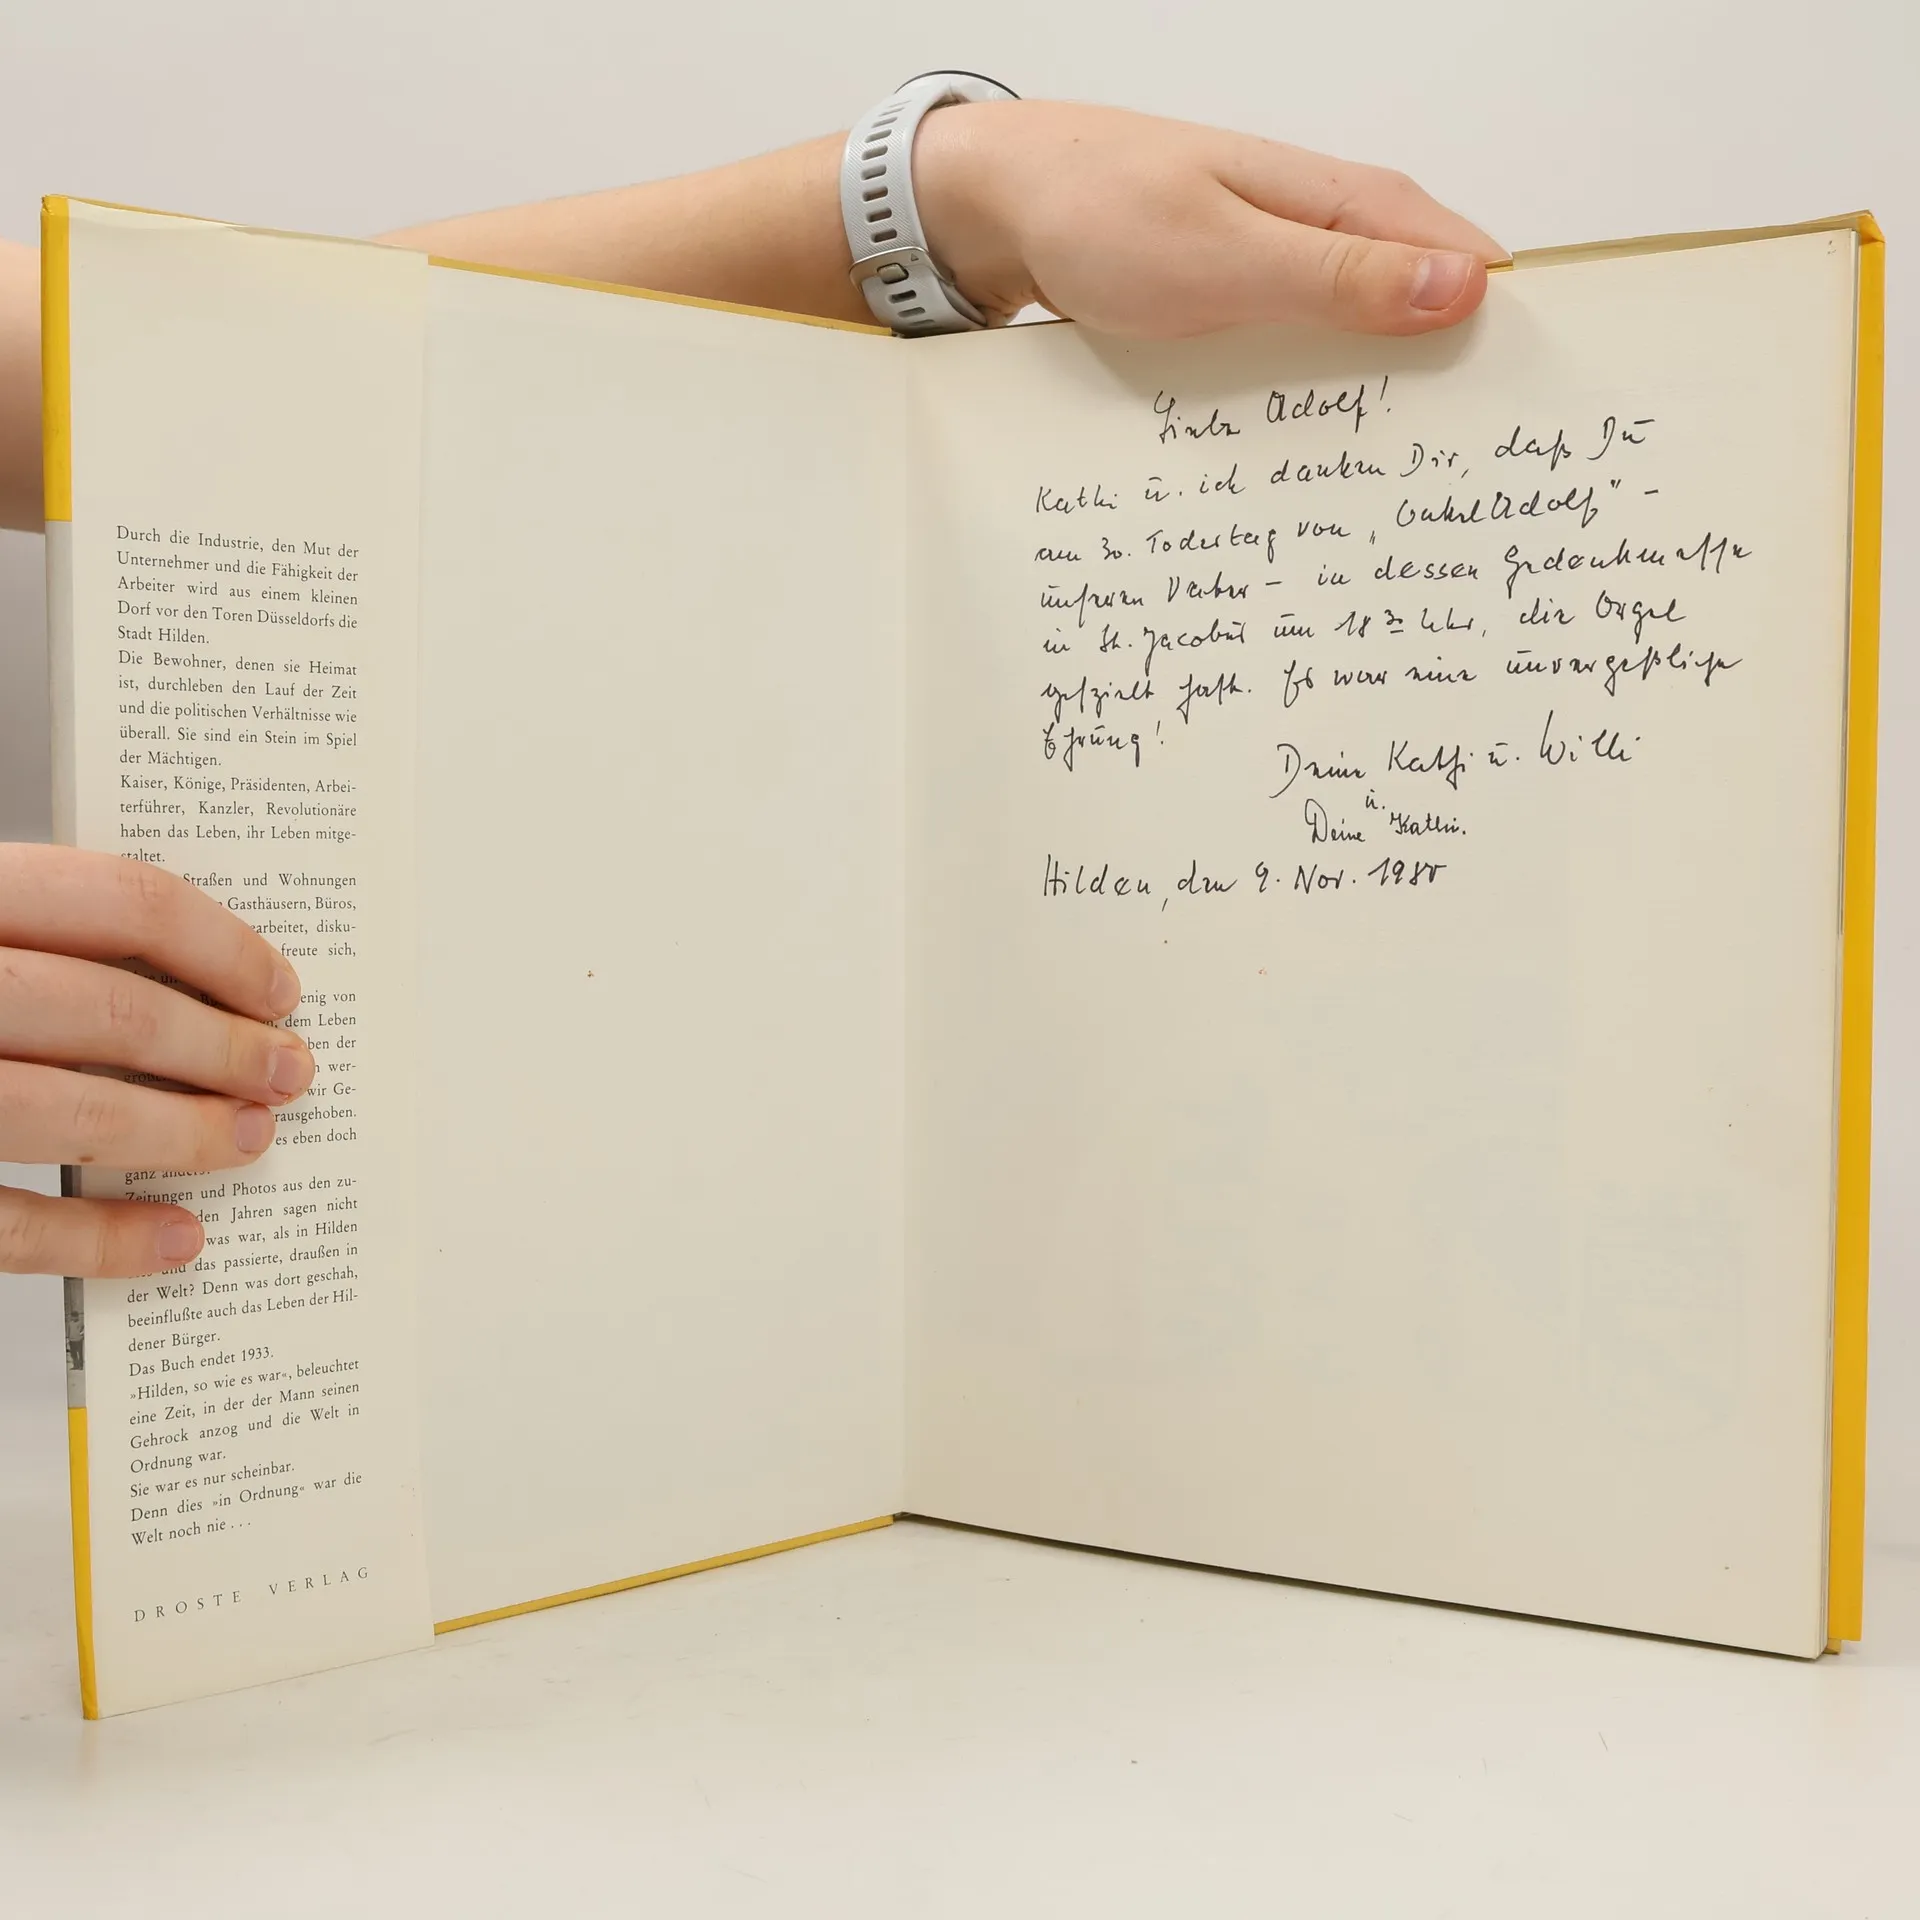 Durch die Industrie, den Mut der
Unternehmer und die Fähigkeit der
Arbeiter wird aus einem kleinen
Dorf vor den Toren Düsseldorfs die
Stadt Hilden.
Die Bewohner, denen sie Heimat
ist, durchleben den Lauf der Zeit
und die politischen Verhältnisse wie
überall. Sie sind ein Stein im Spiel
der Mächtigen.
Kaiser, Könige, Präsidenten, Arbei-
terführer, Kanzler, Revolutionäre
haben das Leben, ihr Leben mitge-
staltet.
Straßen und Wohnungen
Gasthäusern, Büros,
earbeitet, disku-
freute sich,
enig von
dem Leben
ben der
wer-
wir Ge-
rausgehoben.
es eben doch
ganz anders.
Zeitungen und Photos aus den zu-
den Jahren sagen nicht
was war, als in Hilden
und das passierte, draußen in
der Welt? Denn was dort geschah,
beeinflußte auch das Leben der Hil-
dener Bürger.
Das Buch endet 1933.
»Hilden, so wie es war«, beleuchtet
eine Zeit, in der der Mann seinen
Gehrock anzog und die Welt in
Ordnung war.
Sie war es nur scheinbar.
Denn dies »in Ordnung« war die
Welt noch nie . . .
DROSTE VERLAG
Lieber Adolf!
Kathi u. ich danken Dir, daß Du
am 30. Todestag von „Onkel Adolf" –
unserem Vater – in dessen Gedenkmesse
in St. Jacobus um 18 30 Uhr, die Orgel
gespielt hast. Es war eine unvergeßliche
Ehrung!
Deine Kathi u. Willi
u.
Deine Kathi.
Hilden, den 9. Nov. 1980